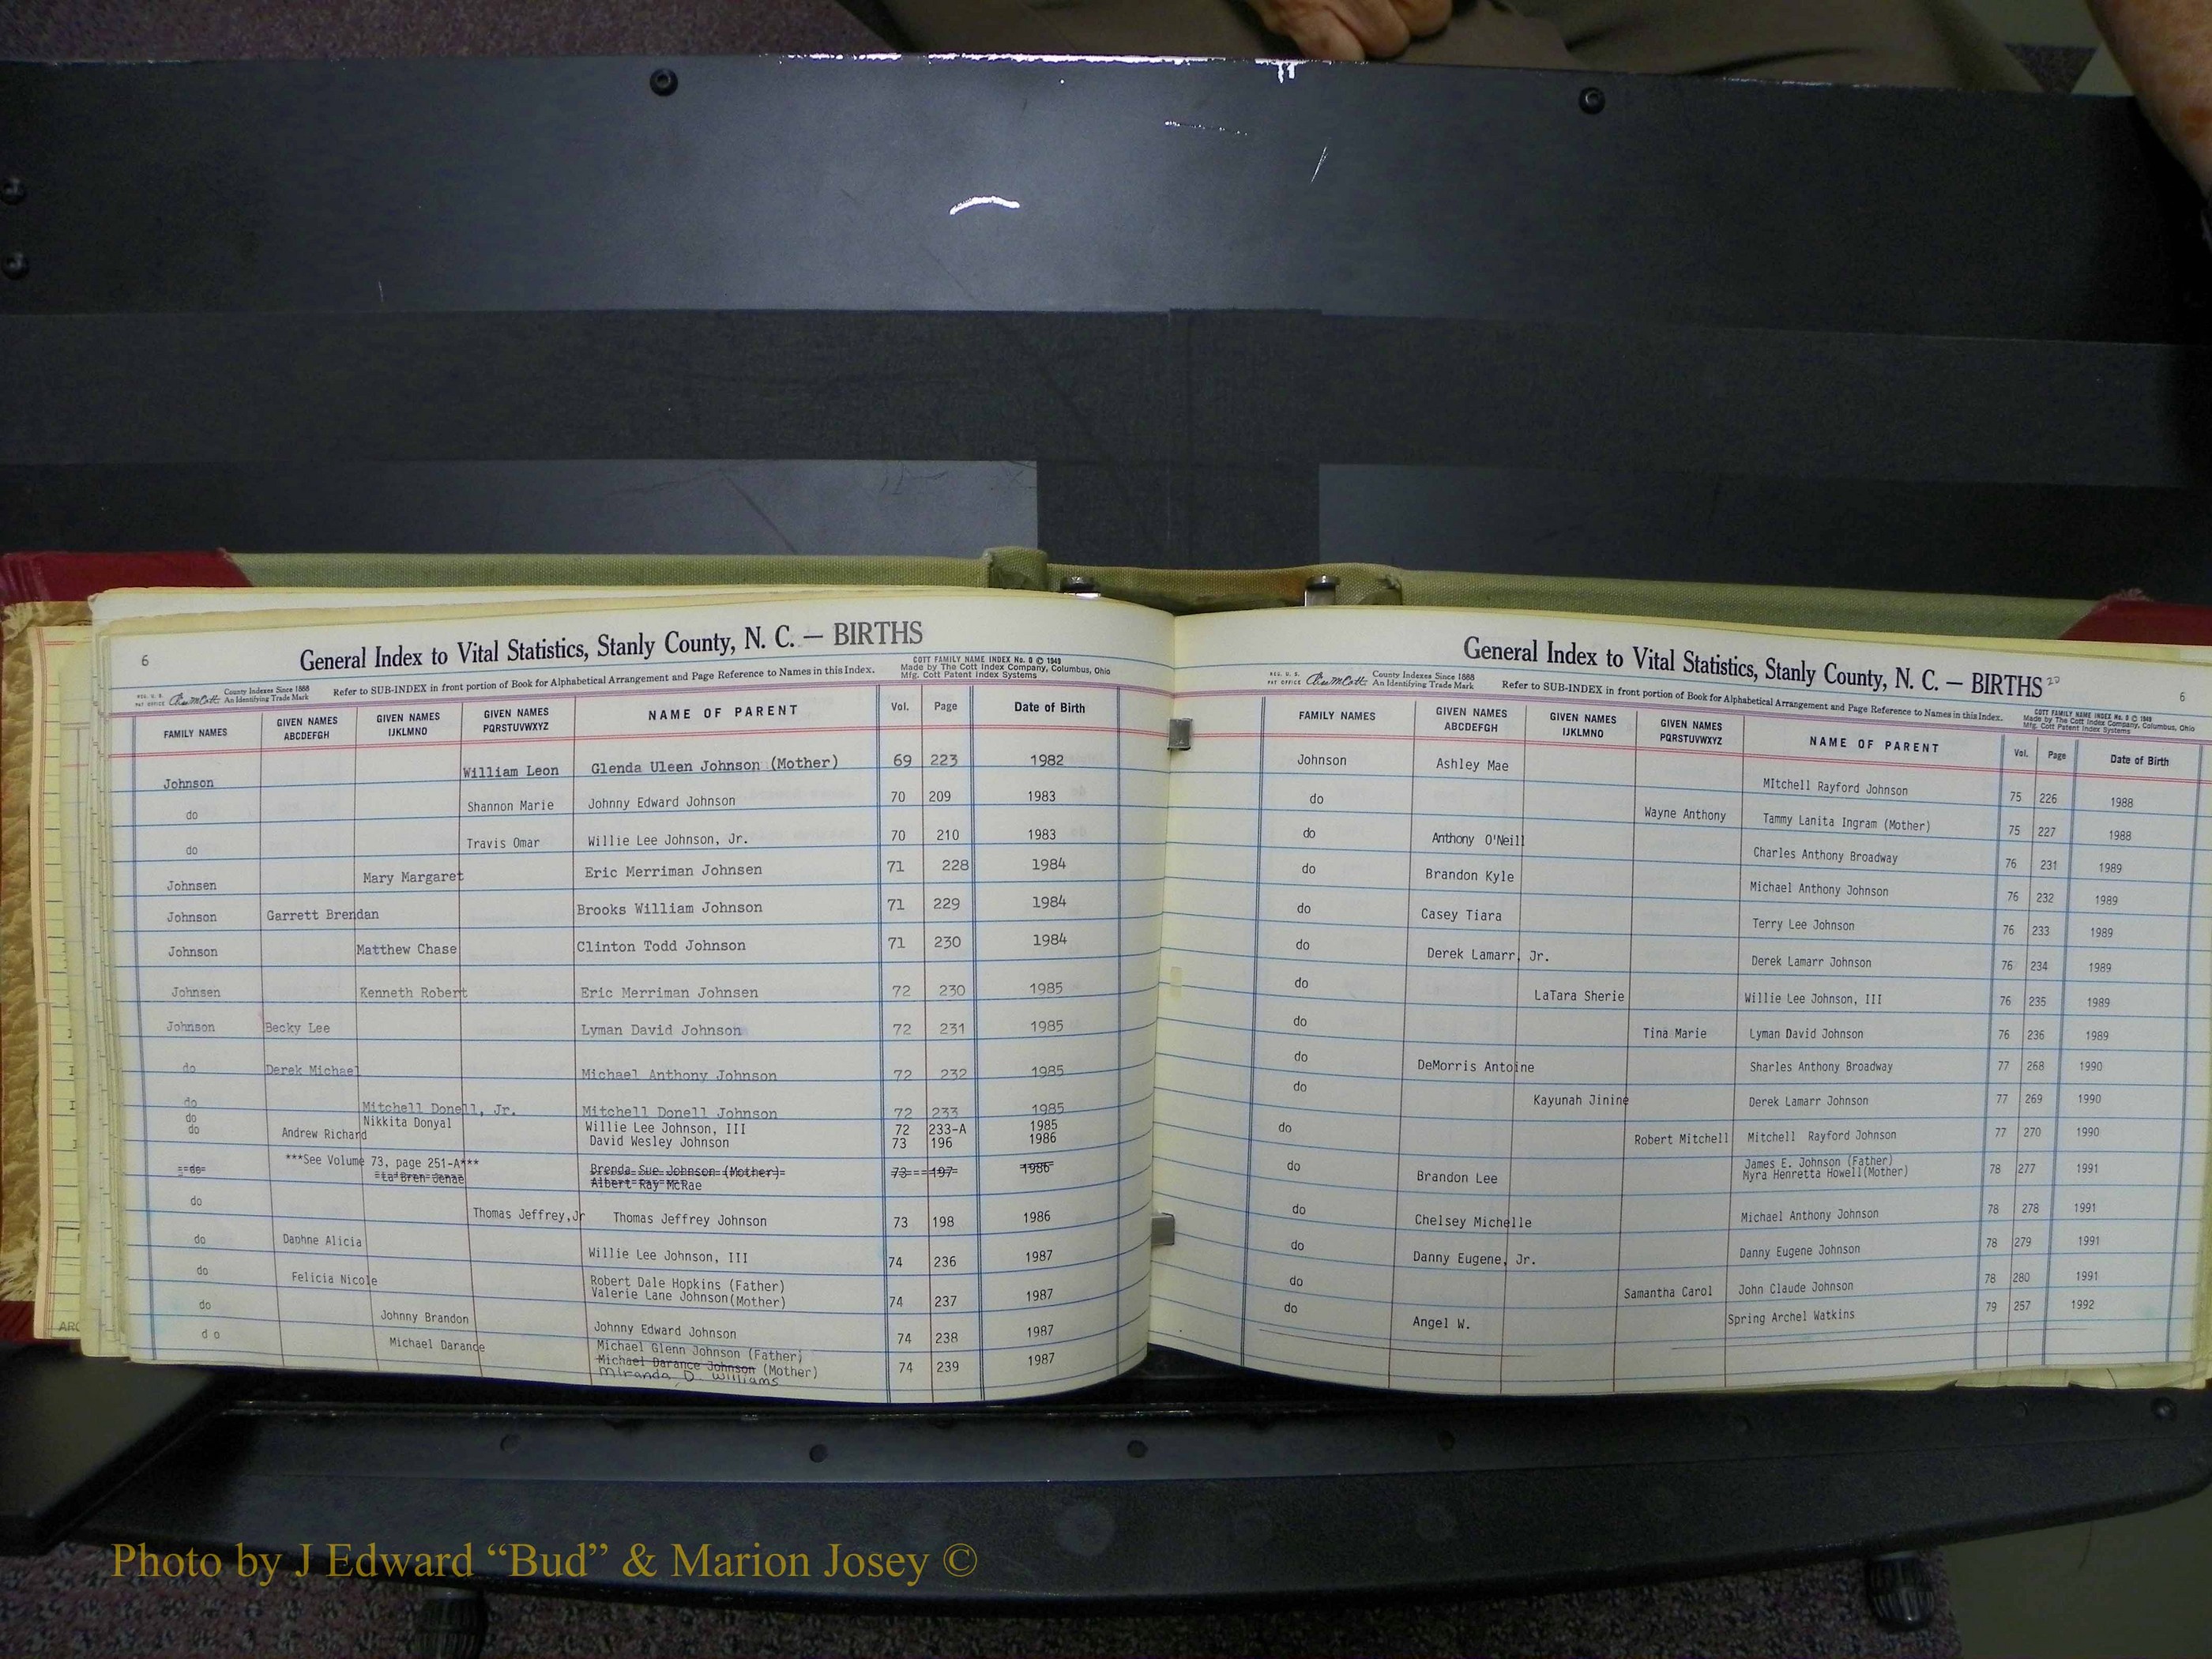 6
General Index to Vital Statistics, Stanly County, N. C. — BIRTHS
COTT FAMILY NAME INDEX No. 0 © 1949
Made by The Cott Index Company, Columbus, Ohio
Mfg. Cott Patent Index Systems
REG. U. S. PAT OFFICE County Indexes Since 1888
An Identifying Trade Mark
Refer to SUB-INDEX in front portion of Book for Alphabetical Arrangement and Page Reference to Names in this Index.
FAMILY NAMES GIVEN NAMES ABCDEFGH GIVEN NAMES IJKLMNO GIVEN NAMES PQRSTUVWXYZ NAME OF PARENT Vol. Page Date of Birth
Johnson William Leon Glenda Uleen Johnson (Mother) 69 223 1982
do Shannon Marie Johnny Edward Johnson 70 209 1983
do Travis Omar Willie Lee Johnson, Jr. 70 210 1983
Johnsen Mary Margaret Eric Merriman Johnsen 71 228 1984
Johnson Garrett Brendan Brooks William Johnson 71 229 1984
Johnson Matthew Chase Clinton Todd Johnson 71 230 1984
Johnsen Kenneth Robert Eric Merriman Johnsen 72 230 1985
Johnson Becky Lee Lyman David Johnson 72 231 1985
do Derek Michael Michael Anthony Johnson 72 232 1985
do Mitchell Donell, Jr. Mitchell Donell Johnson 72 233 1985
do Nikkita Donyal Willie Lee Johnson, III 72 233-A 1985
do Andrew Richard David Wesley Johnson 73 196 1986
***See Volume 73, page 251-A***
==do= =La'Bren Jenae Brenda Sue Johnson (Mother)= 73===197= 1986
Albert Ray McRae
do Thomas Jeffrey,Jr Thomas Jeffrey Johnson 73 198 1986
do Daphne Alicia Willie Lee Johnson, III 74 236 1987
do Felicia Nicole Robert Dale Hopkins (Father)
Valerie Lane Johnson(Mother) 74 237 1987
do Johnny Brandon Johnny Edward Johnson 74 238 1987
d o Michael Darance Michael Glenn Johnson (Father)
Michael Darance Johnson (Mother) 74 239 1987
Miranda D. Williams
General Index to Vital Statistics, Stanly County, N. C. — BIRTHS 20
6
REG. U. S. PAT OFFICE County Indexes Since 1888
An Identifying Trade Mark
Refer to SUB-INDEX in front portion of Book for Alphabetical Arrangement and Page Reference to Names in this Index.
COTT FAMILY NAME INDEX No. 0 © 1949
Made by The Cott Index Company, Columbus, Ohio
Mfg. Cott Patent Index Systems
FAMILY NAMES GIVEN NAMES ABCDEFGH GIVEN NAMES IJKLMNO GIVEN NAMES PQRSTUVWXYZ NAME OF PARENT Vol. Page Date of Birth
Johnson Ashley Mae MItchell Rayford Johnson 75 226 1988
do Wayne Anthony Tammy Lanita Ingram (Mother) 75 227 1988
do Anthony O'Neill Charles Anthony Broadway 76 231 1989
do Brandon Kyle Michael Anthony Johnson 76 232 1989
do Casey Tiara Terry Lee Johnson 76 233 1989
do Derek Lamarr, Jr. Derek Lamarr Johnson 76 234 1989
do LaTara Sherie Willie Lee Johnson, III 76 235 1989
do Tina Marie Lyman David Johnson 76 236 1989
do DeMorris Antoine Sharles Anthony Broadway 77 268 1990
do Kayunah Jinine Derek Lamarr Johnson 77 269 1990
do Robert Mitchell Mitchell Rayford Johnson 77 270 1990
do Brandon Lee James E. Johnson (Father)
Nyra Henretta Howell(Mother) 78 277 1991
do Chelsey Michelle Michael Anthony Johnson 78 278 1991
do Danny Eugene, Jr. Danny Eugene Johnson 78 279 1991
do Samantha Carol John Claude Johnson 78 280 1991
do Angel W. Spring Archel Watkins 79 257 1992
Photo by J Edward “Bud” & Marion Josey ©